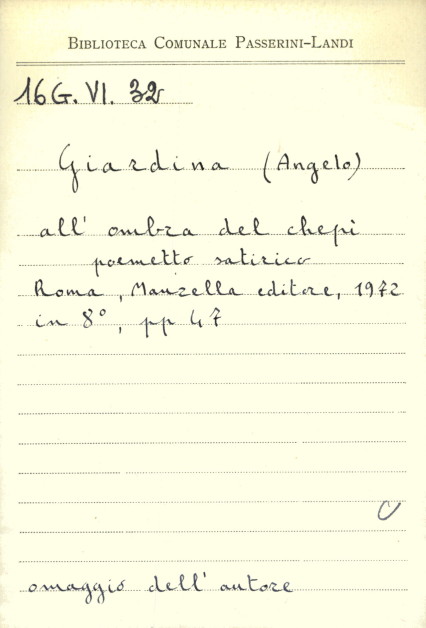 BIBLIOTECA COMUNALE PASSERINI-LANDI
16 G. VI. 32
Giardina (Angelo)
all' ombra del chepì
poemetto satirico
Roma, Manzella editore, 1972
in 8°, pp 47
omaggio dell' autore